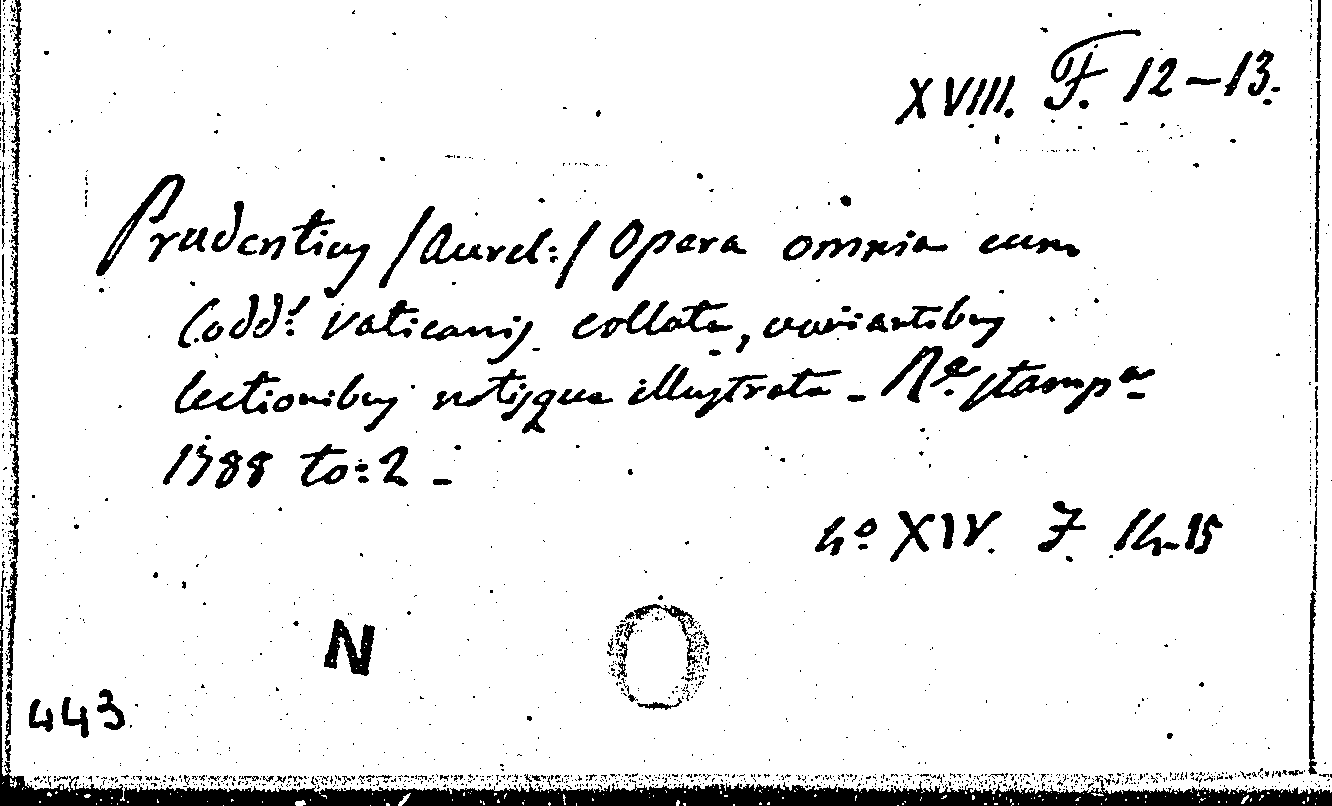 XVIII. F. 12-13.
Prudentius /Aurel:/ Opera omnia cum
Codd: Vaticanis collata, variantibus
lectionibus notisque illustrata - Rª. stampª
1788 to: 2 -
4º XIV. F. 14-15
N
443